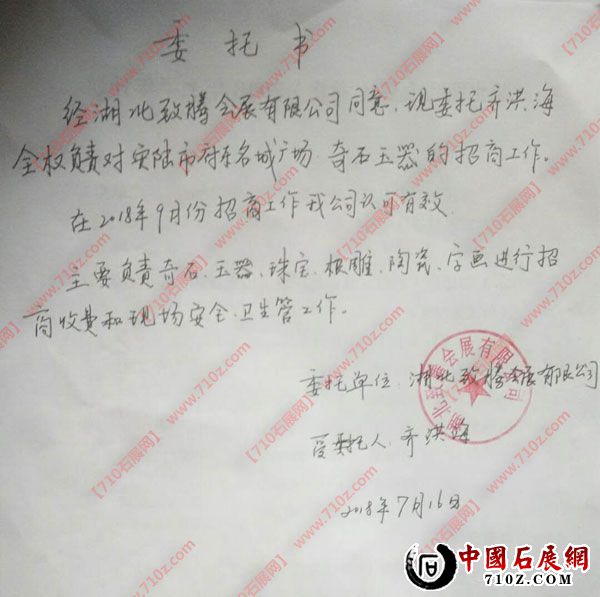 委托书
经湖北致腾会展有限公司同意、现委托齐洪海
全权负责对安陆市府东名城广场 奇石玉器的招商工作。
在2018年9月份招商工作我公司认可有效.
主要负责奇石、玉器、珠宝、根雕、陶瓷、字画进行招
商收费和现场安全、卫生管工作。
委托单位:湖北致腾会展有限公司
受委托人:齐洪海
2018年7月16日
会展有限公司
【710石展网】www.710z.com
中國石展網
710Z.COM